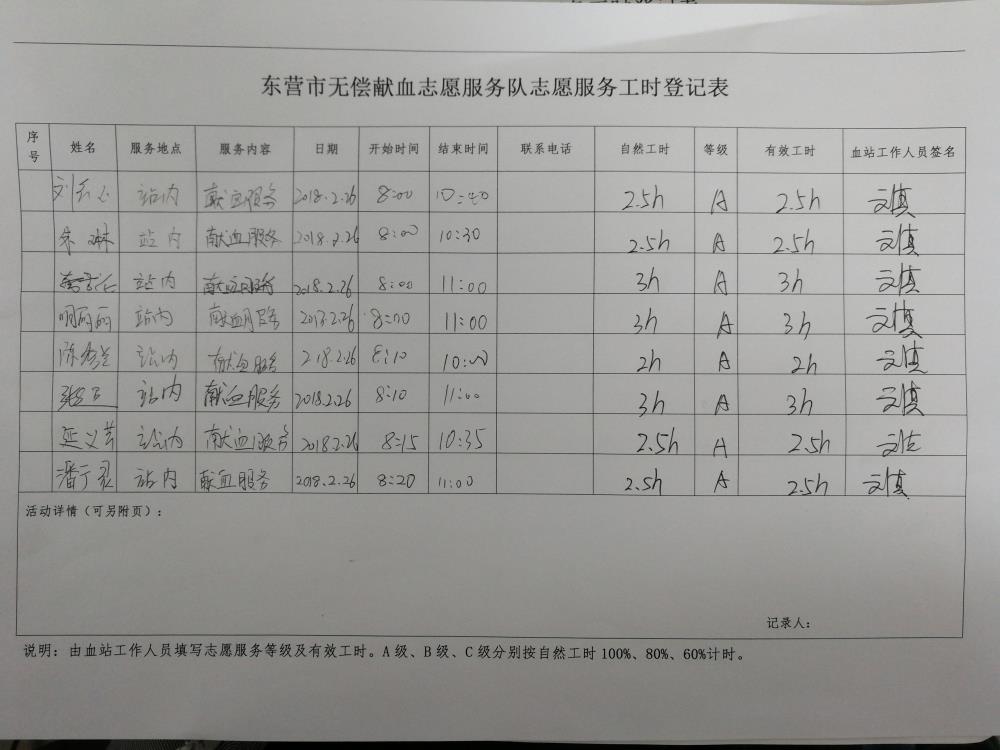 东营市无偿献血志愿服务队志愿服务工时登记表
序号 姓名 服务地点 服务内容 日期 开始时间 结束时间 联系电话 自然工时 等级 有效工时 血站工作人员签名
站内 献血服务 2018.2.26 8:00 2.5h A 2.5h
朱琳 站内 献血服务 2018.2.26 8:00 10:30 2.5h A 2.5h
站内 献血服务 2018.2.26 8:00 11:00 3h A 3h
站内 献血服务 2018.2.26 8:00 11:00 3h A 3h
站内 献血服务 218.2.26 8:10 10:00 2h A 2h
站内 献血服务 2018.2.26 8:10 11:00 3h A 3h
延义芸 站内 献血服务 2018.2.26 8:15 10:35 2.5h A 2.5h
站内 献血服务 2018.2.26 8:20 11:00 2.5h A 2.5h
活动详情（可另附页）：
记录人：
说明：由血站工作人员填写志愿服务等级及有效工时。A级、B级、C级分别按自然工时100%、80%、60%计时。